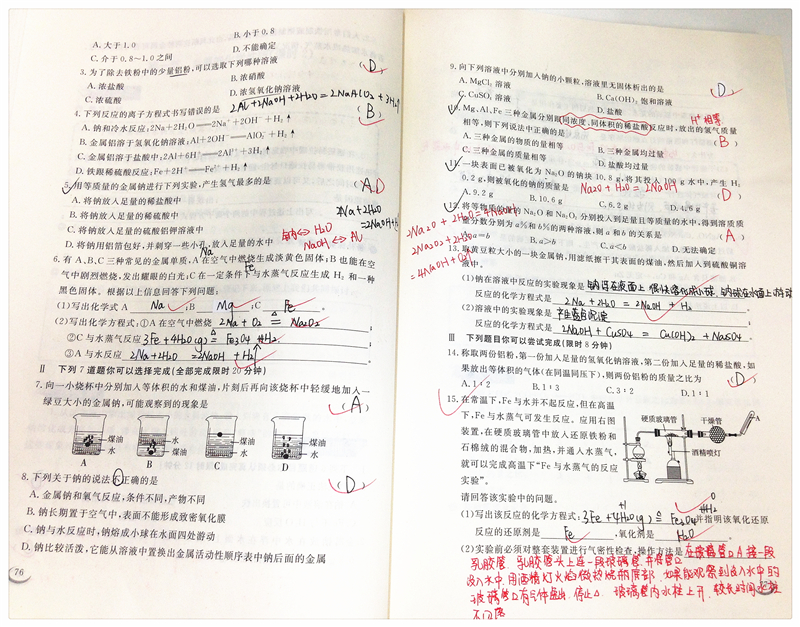 B. 小于 0.8
A. 大于 1.0
D. 不能确定
C. 介于 0.8~1.0 之间
3. 为了除去铁粉中的少量铝粉,可以选取下列哪种溶液
(D)
A. 浓盐酸
B. 浓硝酸
C. 浓硫酸
D. 浓氢氧化钠溶液
2Al+2NaOH+2H₂O=2NaAlO₂+3H₂↑
4. 下列反应的离子方程式书写错误的是
(B)
A. 钠和冷水反应:2Na+2H₂O══2Na⁺+2OH⁻+H₂↑
B. 金属铝溶于氢氧化钠溶液:Al+2OH⁻══AlO₂⁻+H₂↑
C. 金属铝溶于盐酸中:2Al+6H⁺══2Al³⁺+3H₂↑
D. 铁跟稀硫酸反应:Fe+2H⁺══Fe²⁺+H₂↑
5. 用等质量的金属钠进行下列实验,产生氢气最多的是
A. 将钠放入足量的稀盐酸中
B. 将钠放入足量的稀硫酸中
2Na+2H₂O
C. 将钠放入足量的硫酸铝钾溶液中
钠⇔H₂O
D. 将钠用铝箔包好,并刺穿一些小孔,放入足量的水中
NaOH⇔Al
Na
6. 有 A、B、C 三种常见的金属单质,A 在空气中燃烧生成淡黄色固体;B 也能在空
气中剧烈燃烧,发出耀眼的白光;C 在一定条件下与水蒸气反应生成 H₂ 和一种
Fe
黑色固体。根据以上信息回答下列问题:
(1)写出化学式 A Na ;B Mg ;C Fe 。
(2)写出化学方程式:①A 在空气中燃烧 2Na+O₂ △= Na₂O₂ ;
②C 与水蒸气反应 3Fe+4H₂O(g) △= Fe₃O₄+4H₂ ;
③A 与水反应 2Na+2H₂O=2NaOH+H₂↑ 。
Ⅱ 下列 7 道题你可以选择完成(全部完成限时 20 分钟)
7. 向一小烧杯中分别加入等体积的水和煤油,片刻后再向该烧杯中轻缓地加入一
绿豆大小的金属钠,可能观察到的现象是
(A)
煤油 水 水 煤油 煤油 水 煤油 水
A B C D
8. 下列关于钠的说法不正确的是
(D)
A. 金属钠和氧气反应,条件不同,产物不同
B. 钠长期置于空气中,表面不能形成致密氧化膜
C. 钠与水反应时,钠熔成小球在水面四处游动
D. 钠比较活泼,它能从溶液中置换出金属活动性顺序表中钠后面的金属
76
9. 向下列溶液中分别加入钠的小颗粒,溶液里无固体析出的是
(D)
A. MgCl₂ 溶液
B. Ca(OH)₂ 饱和溶液
C. CuSO₄ 溶液
D. 盐酸
H⁺相等
10. Mg、Al、Fe 三种金属分别跟同浓度、同体积的稀盐酸反应时,放出的氢气质量
相等,则下列说法中正确的是
(B)
A. 三种金属的物质的量相等
B. 三种金属均过量
C. 三种金属的质量相等
D. 盐酸均过量
11. 一块表面已被氧化为 Na₂O 的钠块 10.8 g,将其投入 100 g 水中,产生 H₂
0.2 g,则被氧化的钠的质量是
Na₂O+H₂O=2NaOH
(D)
A. 9.2 g
B. 10.6 g
C. 6.2 g
D. 4.6 g
2Na₂O+2H₂O=4NaOH
12. 将等物质的量的 Na₂O 和 Na₂O₂ 分别投入到足量且等质量的水中,得到溶质质
量分数分别为 a%和 b%的两种溶液,则 a 和 b 的关系是
(A)
2Na₂O₂+2H₂O
=4NaOH+O₂↑
A. a=b
B. a>b
C. a<b
D. 无法确定
13. 取黄豆粒大小的一块金属钠,用滤纸擦干其表面的煤油,然后加入到硫酸铜溶
液中。
(1)钠在溶液中反应的实验现象是
反应的化学方程式是 2Na+2H₂O=2NaOH+H₂
(2)溶液中的实验现象是 产生蓝色沉淀
反应的化学方程式是 2NaOH+CuSO₄=Cu(OH)₂+Na₂SO₄
Ⅲ 下列题目你可以尝试完成(限时 8 分钟)
14. 称取两份铝粉,第一份加入足量的氢氧化钠溶液,第二份加入足量的稀盐酸,如
果放出等体积的气体(在同温同压下),则两份铝粉的质量之比为
(D)
A. 1∶2
B. 1∶3
C. 3∶2
D. 1∶1
15. 在常温下,Fe 与水并不起反应,但在高温
下,Fe 与水蒸气可发生反应。应用右图
装置,在硬质玻璃管中放入还原铁粉和
石棉绒的混合物,加热,并通入水蒸气,
就可以完成高温下“Fe 与水蒸气的反应
实验”。
硬质玻璃管
干燥管
A
酒精喷灯
请回答该实验中的问题。
(1)写出该反应的化学方程式:3Fe+4H₂O(g) △= Fe₃O₄+4H₂ 并指明该氧化还原
反应的还原剂是 Fe ,氧化剂是 H₂O 。
(2)实验前必须对整套装置进行气密性检查,操作方法是 在玻璃管口A接一段
乳胶管,乳胶管头上连一段玻璃管,并将管口
没入水中,用酒精灯火焰微热烧瓶底部,如果能观察到没入水中的
玻璃管口有气体逸出,停止△,玻璃管内水柱上升,较长时间